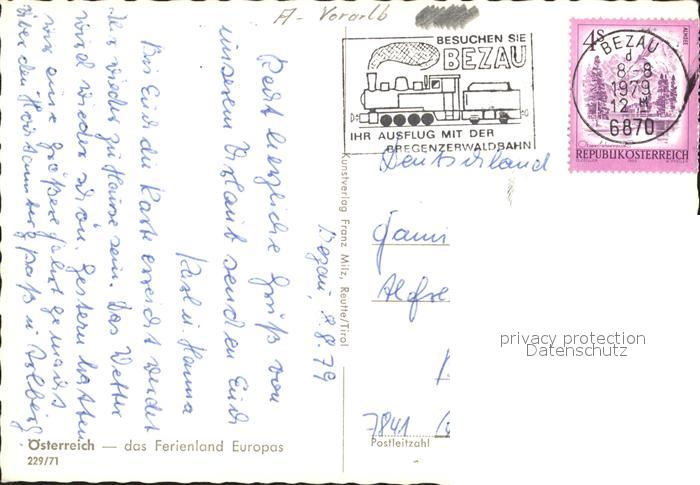 A - Vorarlb
BESUCHEN SIE
BEZAU
IHR AUSFLUG MIT DER
BREGENZERWALDBAHN
BEZAU
d
8.-8
1979
12
6870
4S
REPUBLIK ÖSTERREICH
Bezau, 8.8.79
Recht herzliche Grüße von
unserem Urlaub senden Euch
Karl u. Hanna
Bis Euch die Karte erreicht werdet
Ihr wieder zu Hause sein. Das Wetter
wird wieder schön. Gestern hatten
wir eine größere Fahrt gemacht
über den Hochtannbergpaß u. Arlberg.
Deutschland
Fami
7841
Postleitzahl
Kunstverlag Franz Milz, Reutte/Tirol
Österreich — das Ferienland Europas
229/71
privacy protection
Datenschutz